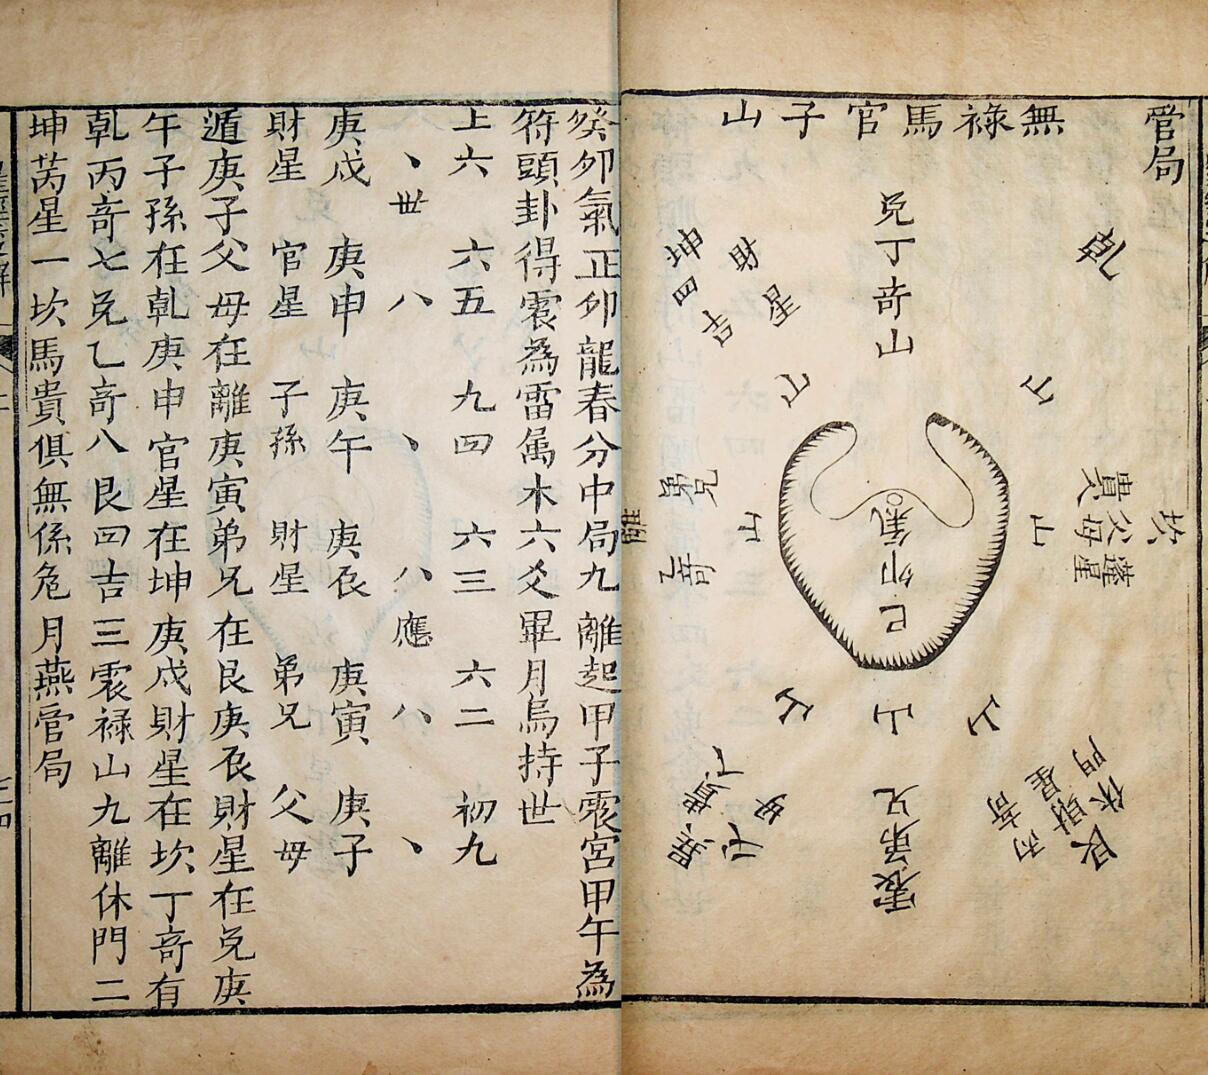 管局
無祿馬官子山
乾
坎
貴人
父母
蓬星
山
山
兌丁奇山
財星
坤四吉
山
兌
奇
山
離
氣卯己
山
山
山
艮
休門
財星
丙奇
震弟兄
父母
癸夘氣正夘龍春分中局九離起甲子震宮甲午為
符頭卦得震為雷属木六爻畢月烏持世
上六 六五 九四 六三 六二 初九
丶世 八 丶 八應 八 丶
庚戌 庚申 庚午 庚辰 庚寅 庚子
財星 官星 子孫 財星 弟兄 父母
遁庚子父母在離庚寅弟兄在艮庚辰財星在兌庚
午子孫在乹庚申官星在坤庚戌財星在坎丁奇有
乹丙奇七兌乙奇八艮四吉三震禄山九離休門二
坤芮星一坎馬貴俱無係危月燕管局